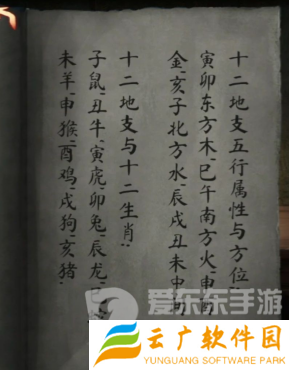 十二地支五行属性与方位：
寅卯东方木、巳午南方火、申酉
金、亥子北方水、辰戌丑未中
十二地支与十二生肖：
子鼠、丑牛、寅虎、卯兔、辰龙、巳
未羊、申猴、酉鸡、戌狗、亥猪
爱东东手游
云广软件园
YUNGUANG SOFTWARE PARK